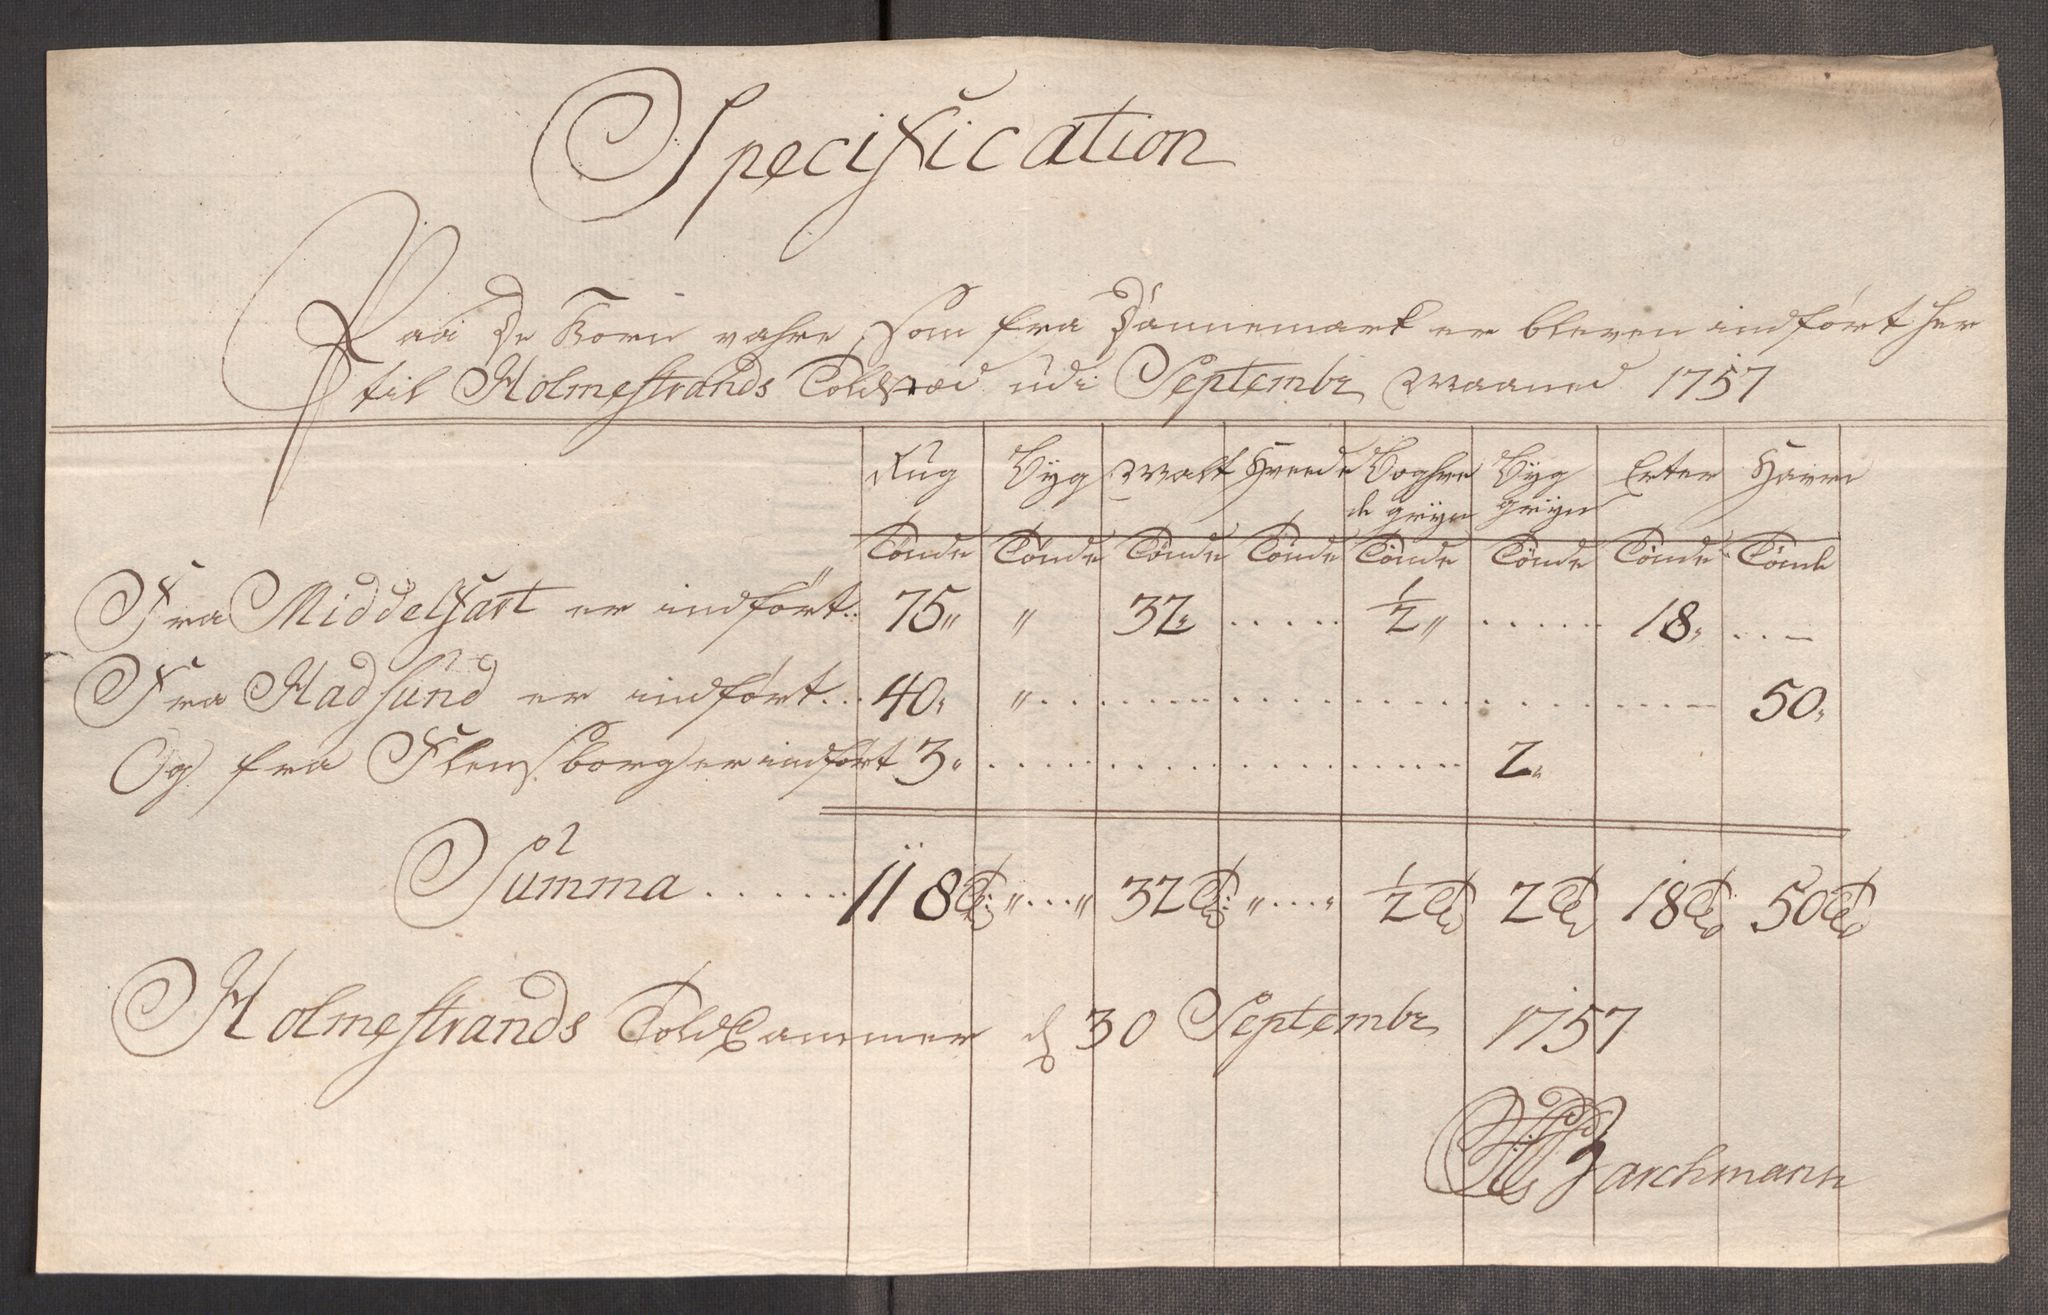 Specification
Paa De Korn vahre, som fra Dännemark er bleven indført her
til Holmestrands Toldstæd udi Septembr Maaned 1757
Rug Byg Malt Hvede Boghve Byg Erter Havre
de gryn gryn
Tønde Tønde Tønde Tønde Tønde Tønde Tønde Tønde
Fra Middelfart er indført.. 75,, ,, 32,, ..... ½,, ..... 18,, ..–
Fra Hadsund er indført... 40,, ,, ........ 50,,
Og fra Flensborg er indført 3,, ........ 2,,
Summa ...... 118 Td ,,...,, 32 Td ,,...,, ½ Td 2 Td 18 Td 50 Td
Holmestrands ToldCammer d 30 Septembr 1757
Barchmann